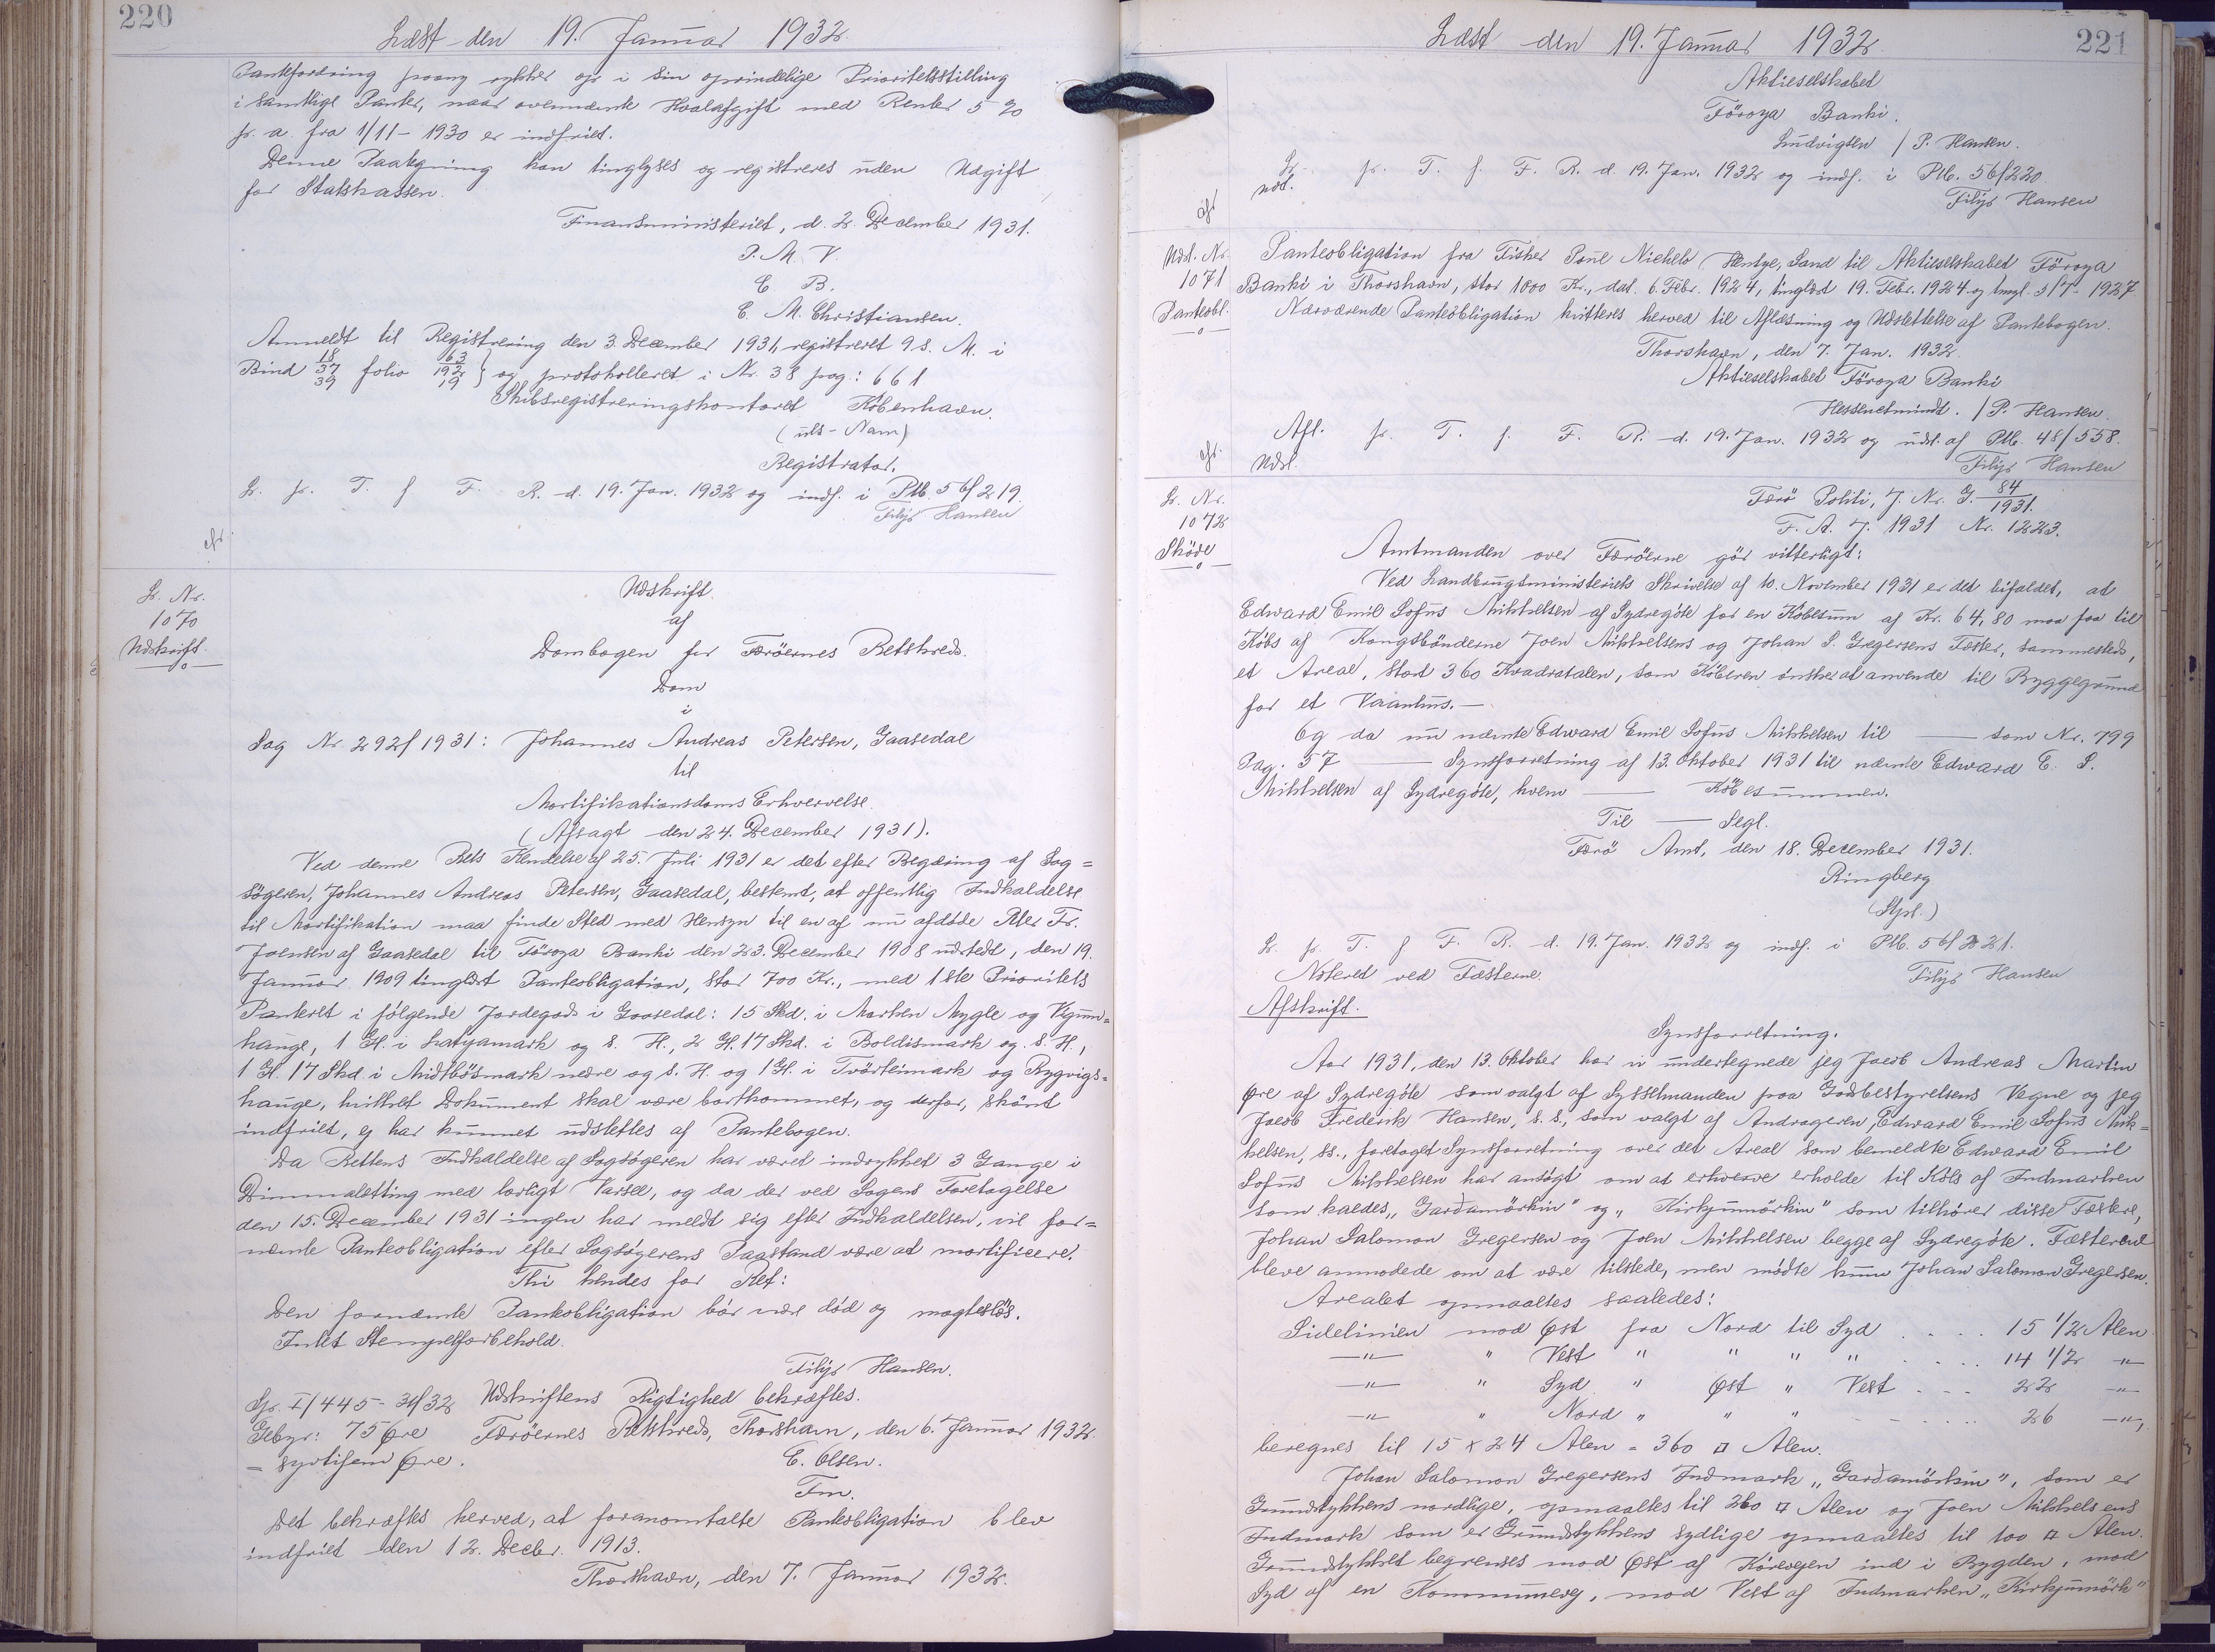 220
Læst den 19. Januar 1932.
Pantefordring paany rykker op i sin oprindelige Prioritetsstilling
i samtlige Panter, naar ovennævnte Hvalafgift med Renter 5 %
p. a. fra 1/11 - 1930 er indfriet.
Denne Paategning kan tinglyses og registreres uden Udgift
for Statskassen.
Finansministeriet, d. 2. December 1931.
P. M. V.
E B.
E. M. Christiansen.
Anmeldt til Registrering den 3. December 1931, registreret 9 s. M. i
Bind 18 37 39 folio 63 192 19 } og protokolleret i Nr. 38 pag: 661
Skibsregistreringskontoret København.
(uls - Navn)
Registrator.
L. p. T. f F. R. d. 19. Jan. 1932 og indf. i Ptb. 56/219.
Filip Hansen
cfr.
L. Nr.
1070
Udskrift.
Udskrift
af
Dombogen for Færöernes Retskreds.
Dom
i
Sag Nr. 292/1931: Johannes Andreas Petersen, Gaasedal
til
Mortifikationsdoms Erhvervelse.
(Afsagt den 24. December 1931).
Ved denne Rets Kendelse af 25. Juli 1931 er det efter Begæring af Sag=
søgeren, Johannes Andreas Petersen, Gaasedal, bestemt, at offentlig Indkaldelse
til Mortifikation maa finde Sted med Hensyn til en af nu afdøde Peter Fr.
Joensen af Gaasedal til Föroya Banki den 23. December 1908 udstedt, den 19.
Januar 1909 tinglæst Panteobligation, stor 700 Kr., med 1ste Prioritets
Panteret i følgende Jordegods i Gaasedal: 15 Skd. i Marken Mygle og Vgunn=
hauge, 1 Gl. i Latyamark og s. H., 2 Gl. 17 Skd. i Boldismark og s. H.,
1 Gl. 17 Skd. i Midtbösmark nedre og s. H. og 1 Gl. i Tvörteimark og Rygvigs=
hauge, hvilket Dokument skal være bortkommet, og derfor, skönt
indfriet, ej har kunnet udslettes af Pantebogen.
Da Rettens Indkaldelse af Sagsøgeren har været indrykket 3 Gange i
Dimmalætting med lovligt Varsel, og da der ved Sagens Foretagelse
den 15. December 1931 ingen har meldt sig efter Indkaldelsen, vil for=
nævnte Panteobligation efter Sagsøgerens Paastand være at mortificere.
Thi kendes for Ret:
Den fornævnte Panteobligation bör være död og magteslös.
Intet Stempelforbehold.
Filip Hansen.
Gr. I/445 - 3/32 Udskriftens Rigtighed bekræftes.
Gebyr: 75 Øre Færöernes Retskreds, Thorshavn, den 6. Januar 1932.
= syvtifem Øre. E. Olsen.
Fm.
Det bekræftes herved, at foranomtalte Panteobligation blev
indfriet den 12. Decbr. 1913.
Thorshavn, den 7. Januar 1932.
221
Læst den 19. Januar 1932.
Aktieselskabet
Föroya Banki.
Ludvigsen / P. Hansen.
L. p. T. f. F. R. d. 19. Jan. 1932 og indf. i Ptb. 56/220.
udsl.
Filip Hansen
cfr
Udsl. Nr.
1071
Panteobl.
Panteobligation fra Fisker Poul Nicklo Hentze, Sand til Aktieselskabet Föroya
Banki i Thorshavn, stor 1000 Kr., dat. 6. Febr. 1924, tinglæst 19. Febr. 1924 og tingl. 5/7 - 1927
Nærværende Panteobligation kvitteres herved til Aflæsning og Udslettelse af Pantebogen.
Thorshavn, den 7. Jan. 1932.
Aktieselskabet Föroya Banki
/ P. Hansen.
Afl. p. T. f. F. R. d. 19. Jan. 1932 og udsl. af Ptb. 48/558.
Udsl.
Filip Hansen
cfr.
L. Nr.
1072
Sköde
Færö Politi, J. Nr. G. 84/1931.
F. A. J. 1931 Nr. 1223.
Amtmanden over Færöerne gör vitterligt:
Ved Landbrugsministeriets Skrivelse af 10. November 1931 er det bifaldet, at
Edward Emil Sofus Mikkelsen af Sydregöte for en Købesum af Kr. 64,80 maa faa til
Købs af Kongsbönderne Joen Mikkelsens og Johan S. Gregersens Fæster, sammesteds,
et Areal, stort 360 Kvadratalen, som Köberen önsker at anvende til Byggegrund
for et Vaanhus. —
Og da nu nævnte Edward Emil Sofus Mikkelsen til — som Nr. 799
Pag. 57 — Synsforretning af 13. Oktober 1931 til nævnte Edward E. S.
Mikkelsen af Sydregöte, hvem — Köbesummen.
Til — Segl.
Færö Amt, den 18. December 1931.
Ringberg
(Stpl.)
L. p. T. f F. R. d. 19. Jan. 1932 og indf. i Ptb. 56/221.
Noteret ved Fæsterne. Filip Hansen
Afskrift.
Synsforretning.
Aar 1931, den 13. Oktober har vi undertegnede jeg Jacob Andreas Martin
Øre af Sydregöte som valgt af Sysselmanden paa Godsbestyrelsens Vegne og jeg
Jacob Frederik Hansen, s. s., som valgt af Andrageren, Edward Emil Sofus Mik=
kelsen, ss., foretaget Synsforretning over det Areal som bemeldte Edward Emil
Sofus Mikkelsen har ansøgt om at erhverve erholde til Købs af Indmarken
som kaldes „Gardamörkin" og „Kirkjumörkin" som tilhører disse Fæstere,
Johan Salomon Gregersen og Joen Mikkelsen begge af Sydregöte. Fæsterene
bleve anmodede om at være tilstede, men mödte kun Johan Salomon Gregersen.
Arealet opmaaltes saaledes:
Sidelinien mod Øst fra Nord til Syd . . . . 15 1/2 Alen
—"— " Vest " " " " . . . . . 14 1/2 —"—
—"— " Syd " Øst " Vest . . . 22 —"—
—"— " Nord " " " . . . . . . 26 —"—,
beregnes til 15 x 24 Alen = 360 □ Alen.
Johan Salomon Gregersens Indmark „Gardamörkin", som er
Grundstykkens nordlige, opmaaltes til 260 □ Alen og Joen Mikkelsens
Indmark som er Grundstykkens sydlige opmaaltes til 100 □ Alen.
Grundstykket begrenses mod Øst af Körevejen ind i Bygden, mod
Syd af en Kommunevej, mod Vest af Indmarken „Kirkjumörk"